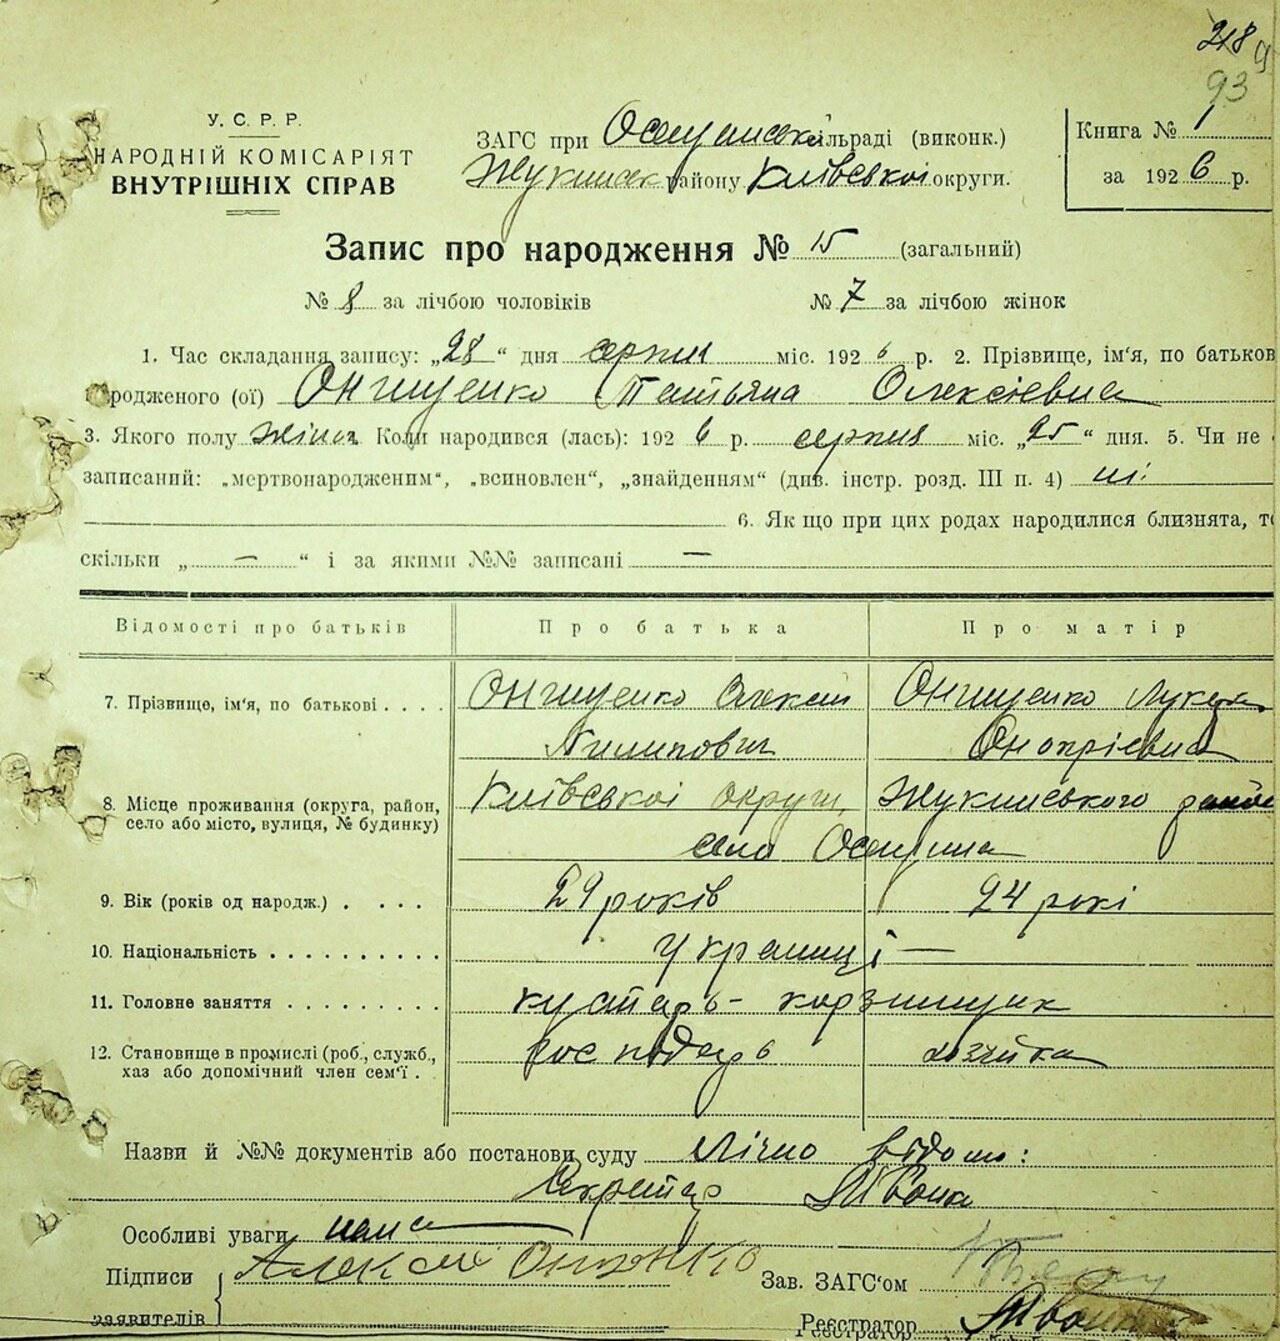 218
93
У. С. Р. Р.
НАРОДНІЙ КОМІСАРІЯТ
ВНУТРІШНІХ СПРАВ
ЗАГС при сільраді (виконк.)
району Київської округи.
Книга № 1
за 1926 р.
Запис про народження № 15 (загальний)
№ 8 за лічбою чоловіків № 7 за лічбою жінок
1. Час складання запису: „28“ дня серпня міс. 1926 р. 2. Прізвище, ім'я, по батьков
родженого (ої) Онищенко Татьяна Олексіевна
3. Якого полу жіноч Коли народився (лась): 1926 р. серпня міс. „25“ дня. 5. Чи не
записаний: „мертвонародженим“, „всиновлен“, „знайденням“ (див. інстр. розд. III п. 4) ні
6. Як що при цих родах народилися близнята, то
скільки „ — “ і за якими №№ записані —
Відомості про батьків Про батька Про матір
7. Прізвище, ім'я, по батькові . . . . Онищенко Олексій Онищенко
Пилипович Онопріевна
8. Місце проживання (округа, район, Київської округи,
село або місто, вулиця, № будинку) село
9. Вік (років од народж.) . . . . 29 років 24 рокі
10. Національність . . . . . . . . . . українці —
11. Головне заняття . . . . . . . . кустарь - корзинщик
12. Становище в промислі (роб., служб., господарь хозяйка
хаз або допомічний член сем'ї .
Назви й №№ документів або постанови суду Лічно відомо:
Секретар
Особливі уваги нема
Підписи Алексей Онищенко
заявителів
Зав. ЗАГС'ом
Реєстратор